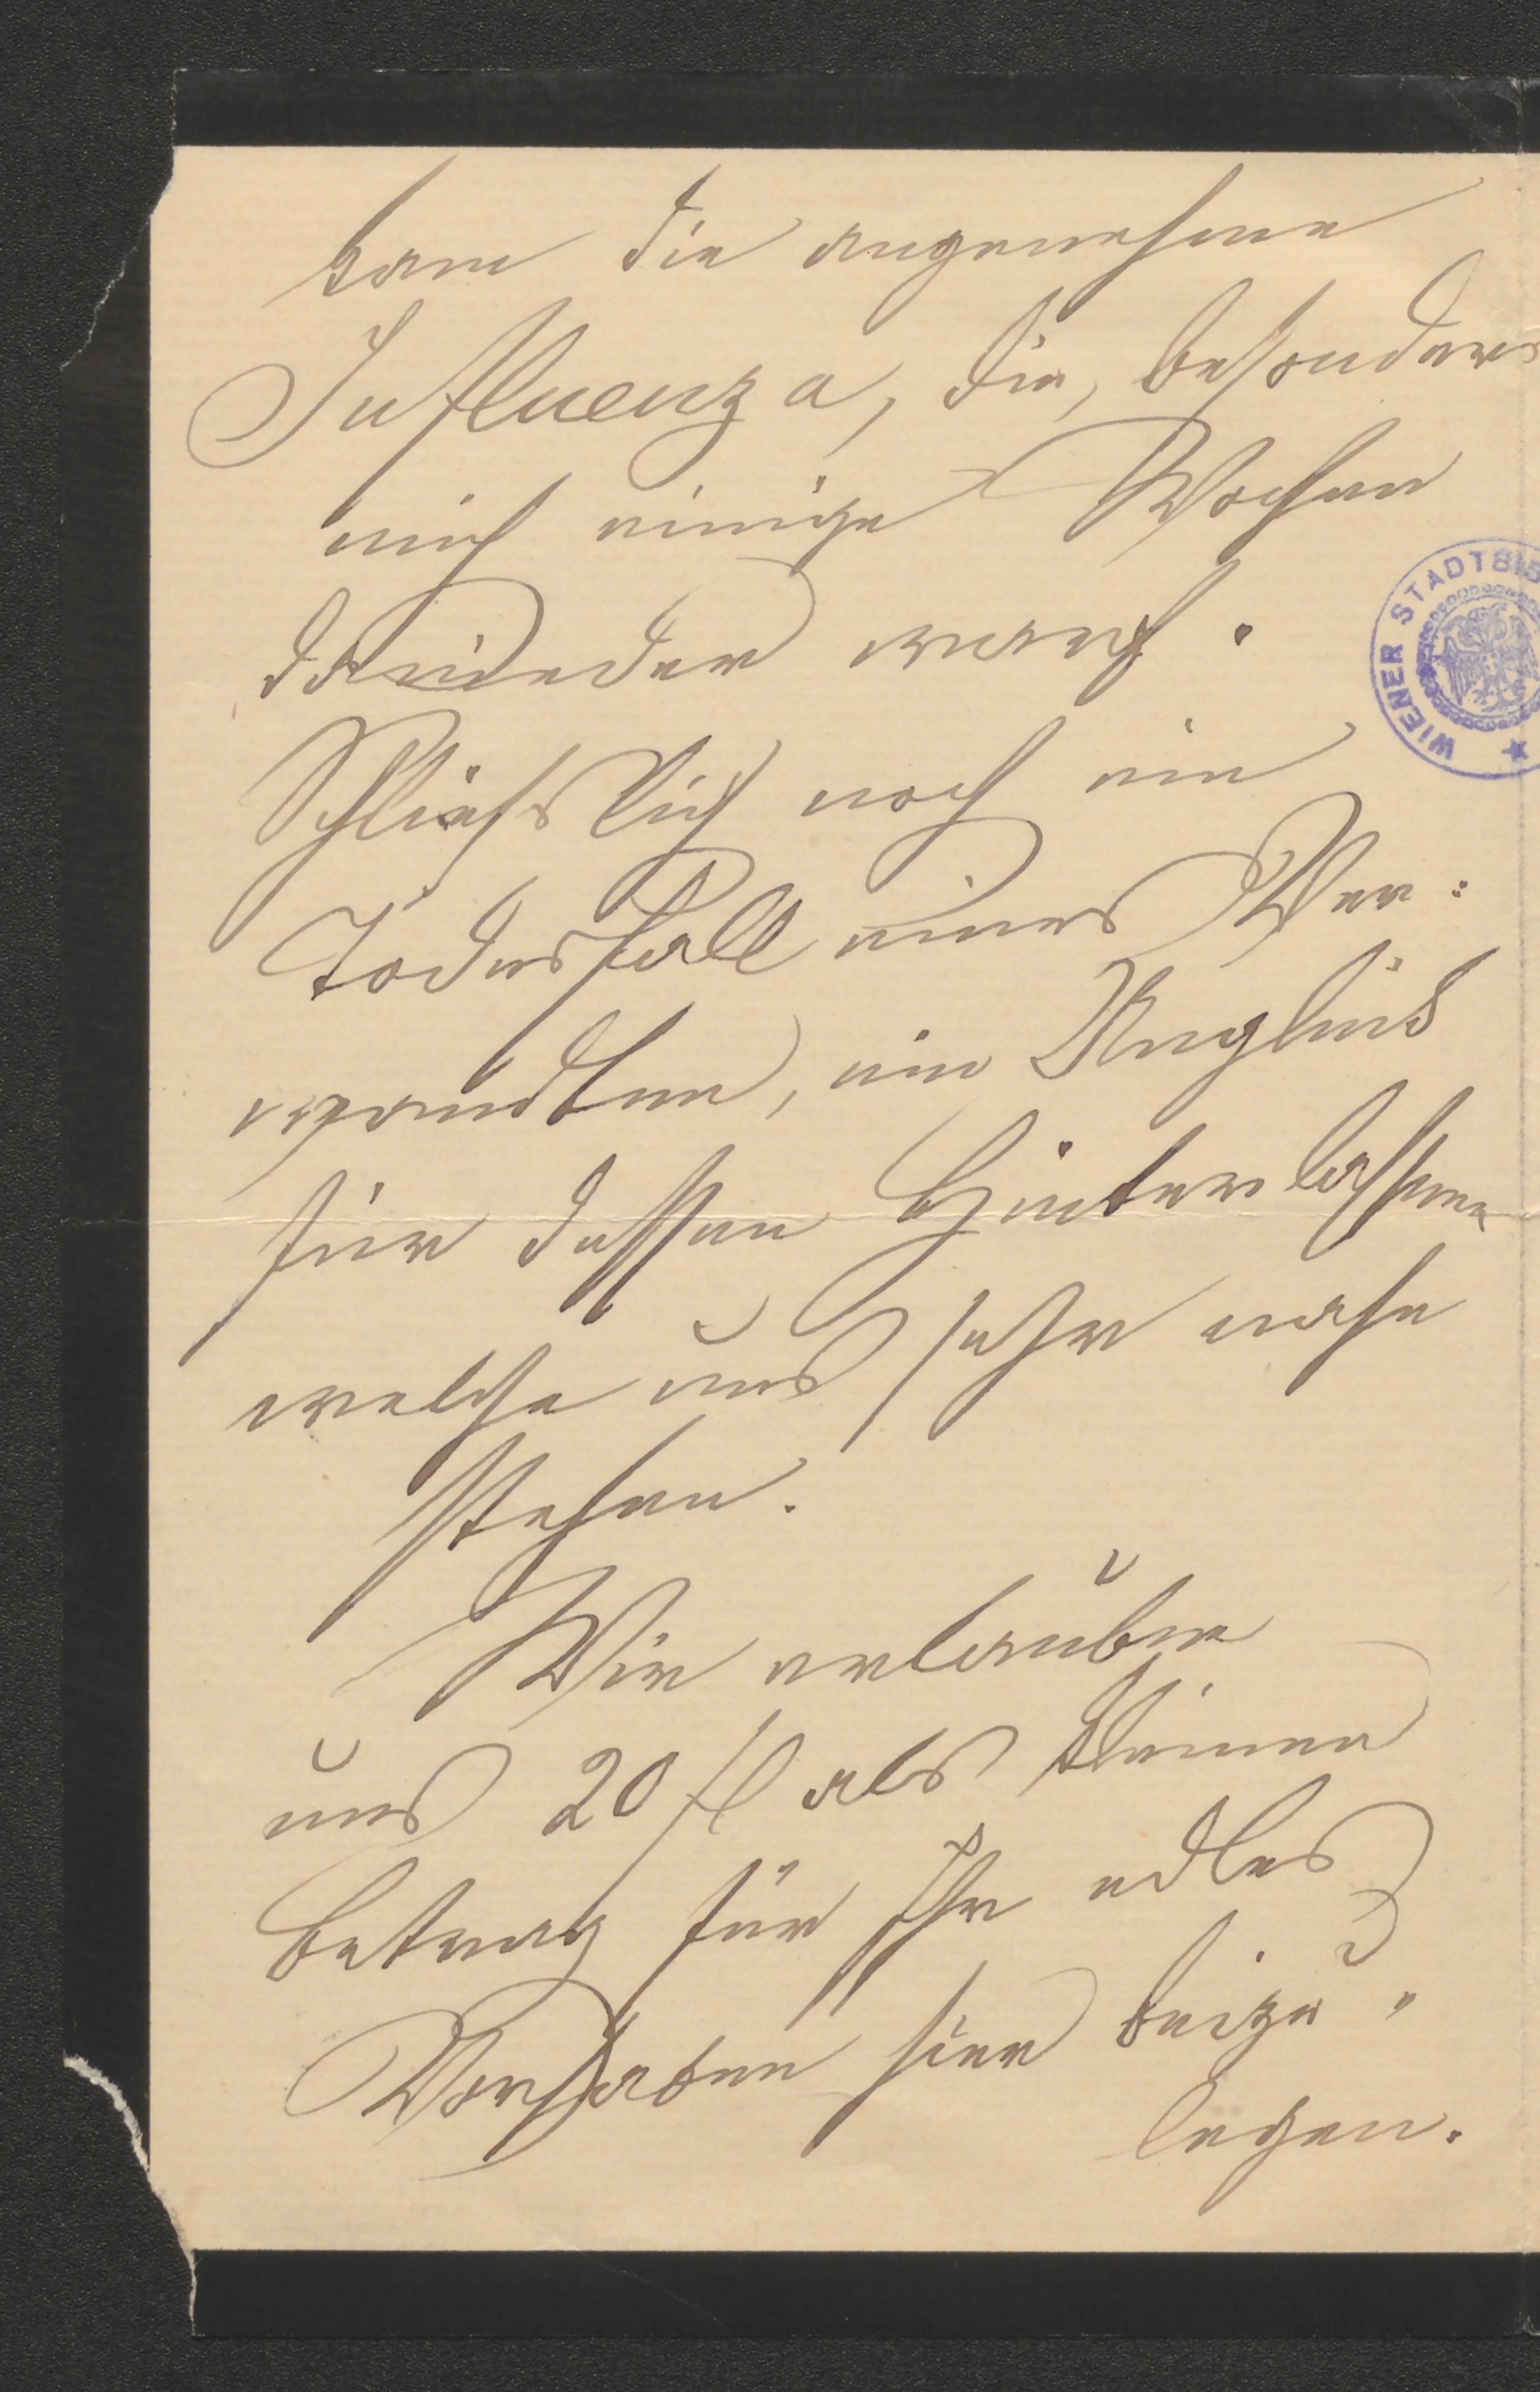 kam die angenehme
Influenza, die, besonders
mich einige Wochen
darnieder warf.
Schliesslich noch ein
Todesfall eines Ver:
wandten, ein Unglück
für dessen Hinterlassene
welche uns sehr nahe
stehen.
Wir erlauben
uns 20 fl als kleinen
Betrag für Ihr edles
Vorhaben hier beizu"
legen.
WIENER STADTBIB